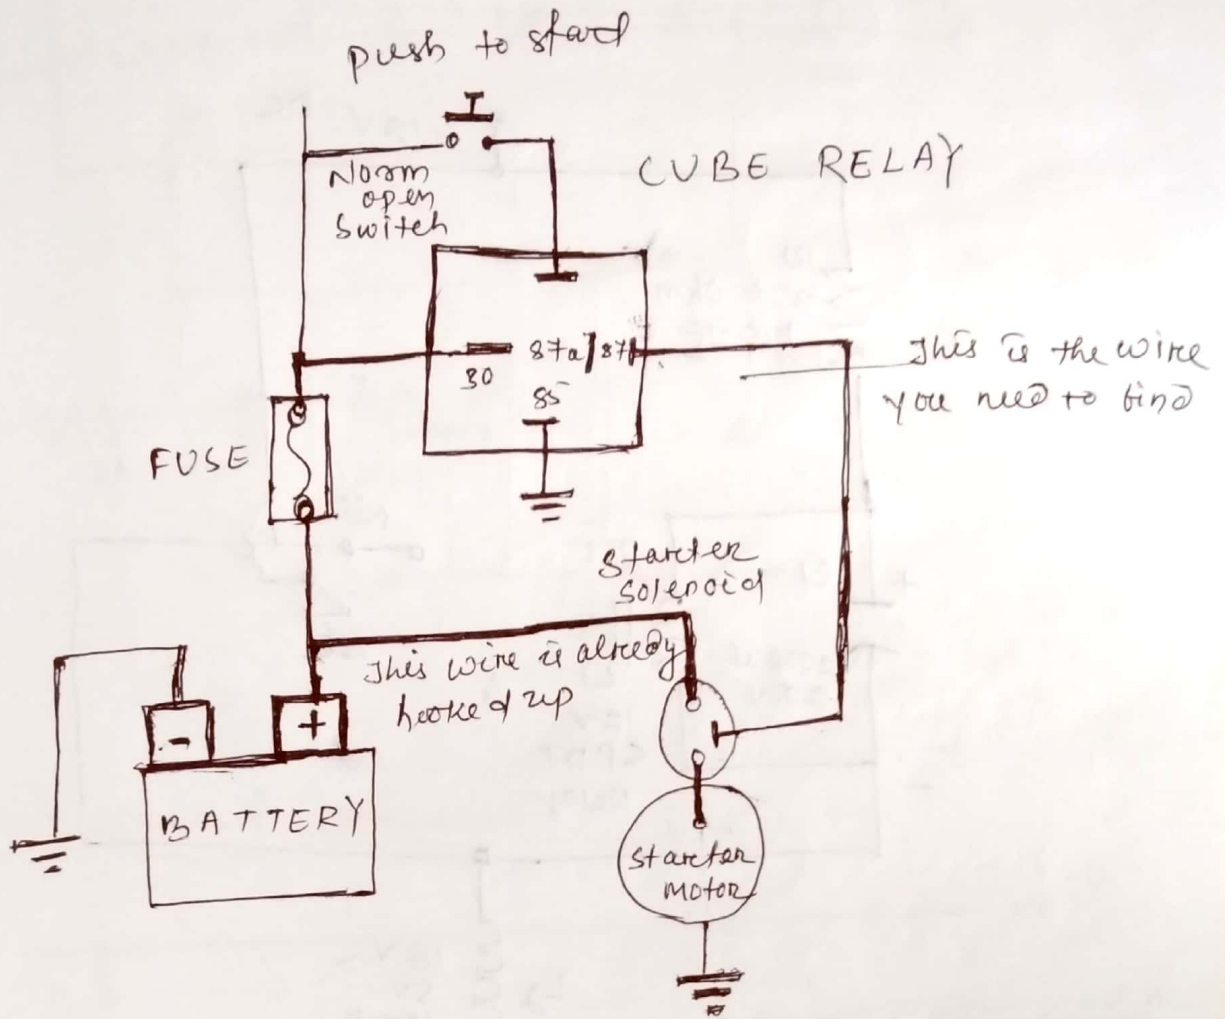 push to start
Norm
open
Switch
CUBE RELAY
30
87a
87
85
This is the wire
you need to find
FUSE
Starter
Solenoid
This wire is already
hooked up
-
+
BATTERY
Starter
Motor